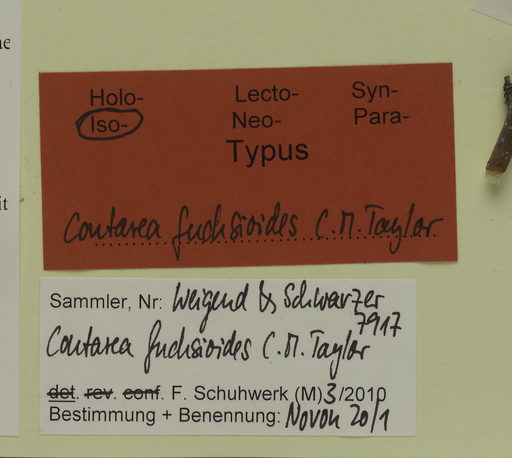 Holo- Lecto- Syn-
Iso- Neo- Para-
Typus
Coutarea fuchsioides C.M. Taylor
Sammler, Nr: Weigend & Schwarzer
7917
Coutarea fuchsioides C.M. Taylor
det. rev. conf. F. Schuhwerk (M) 3/2010
Bestimmung + Benennung: Novon 20/1